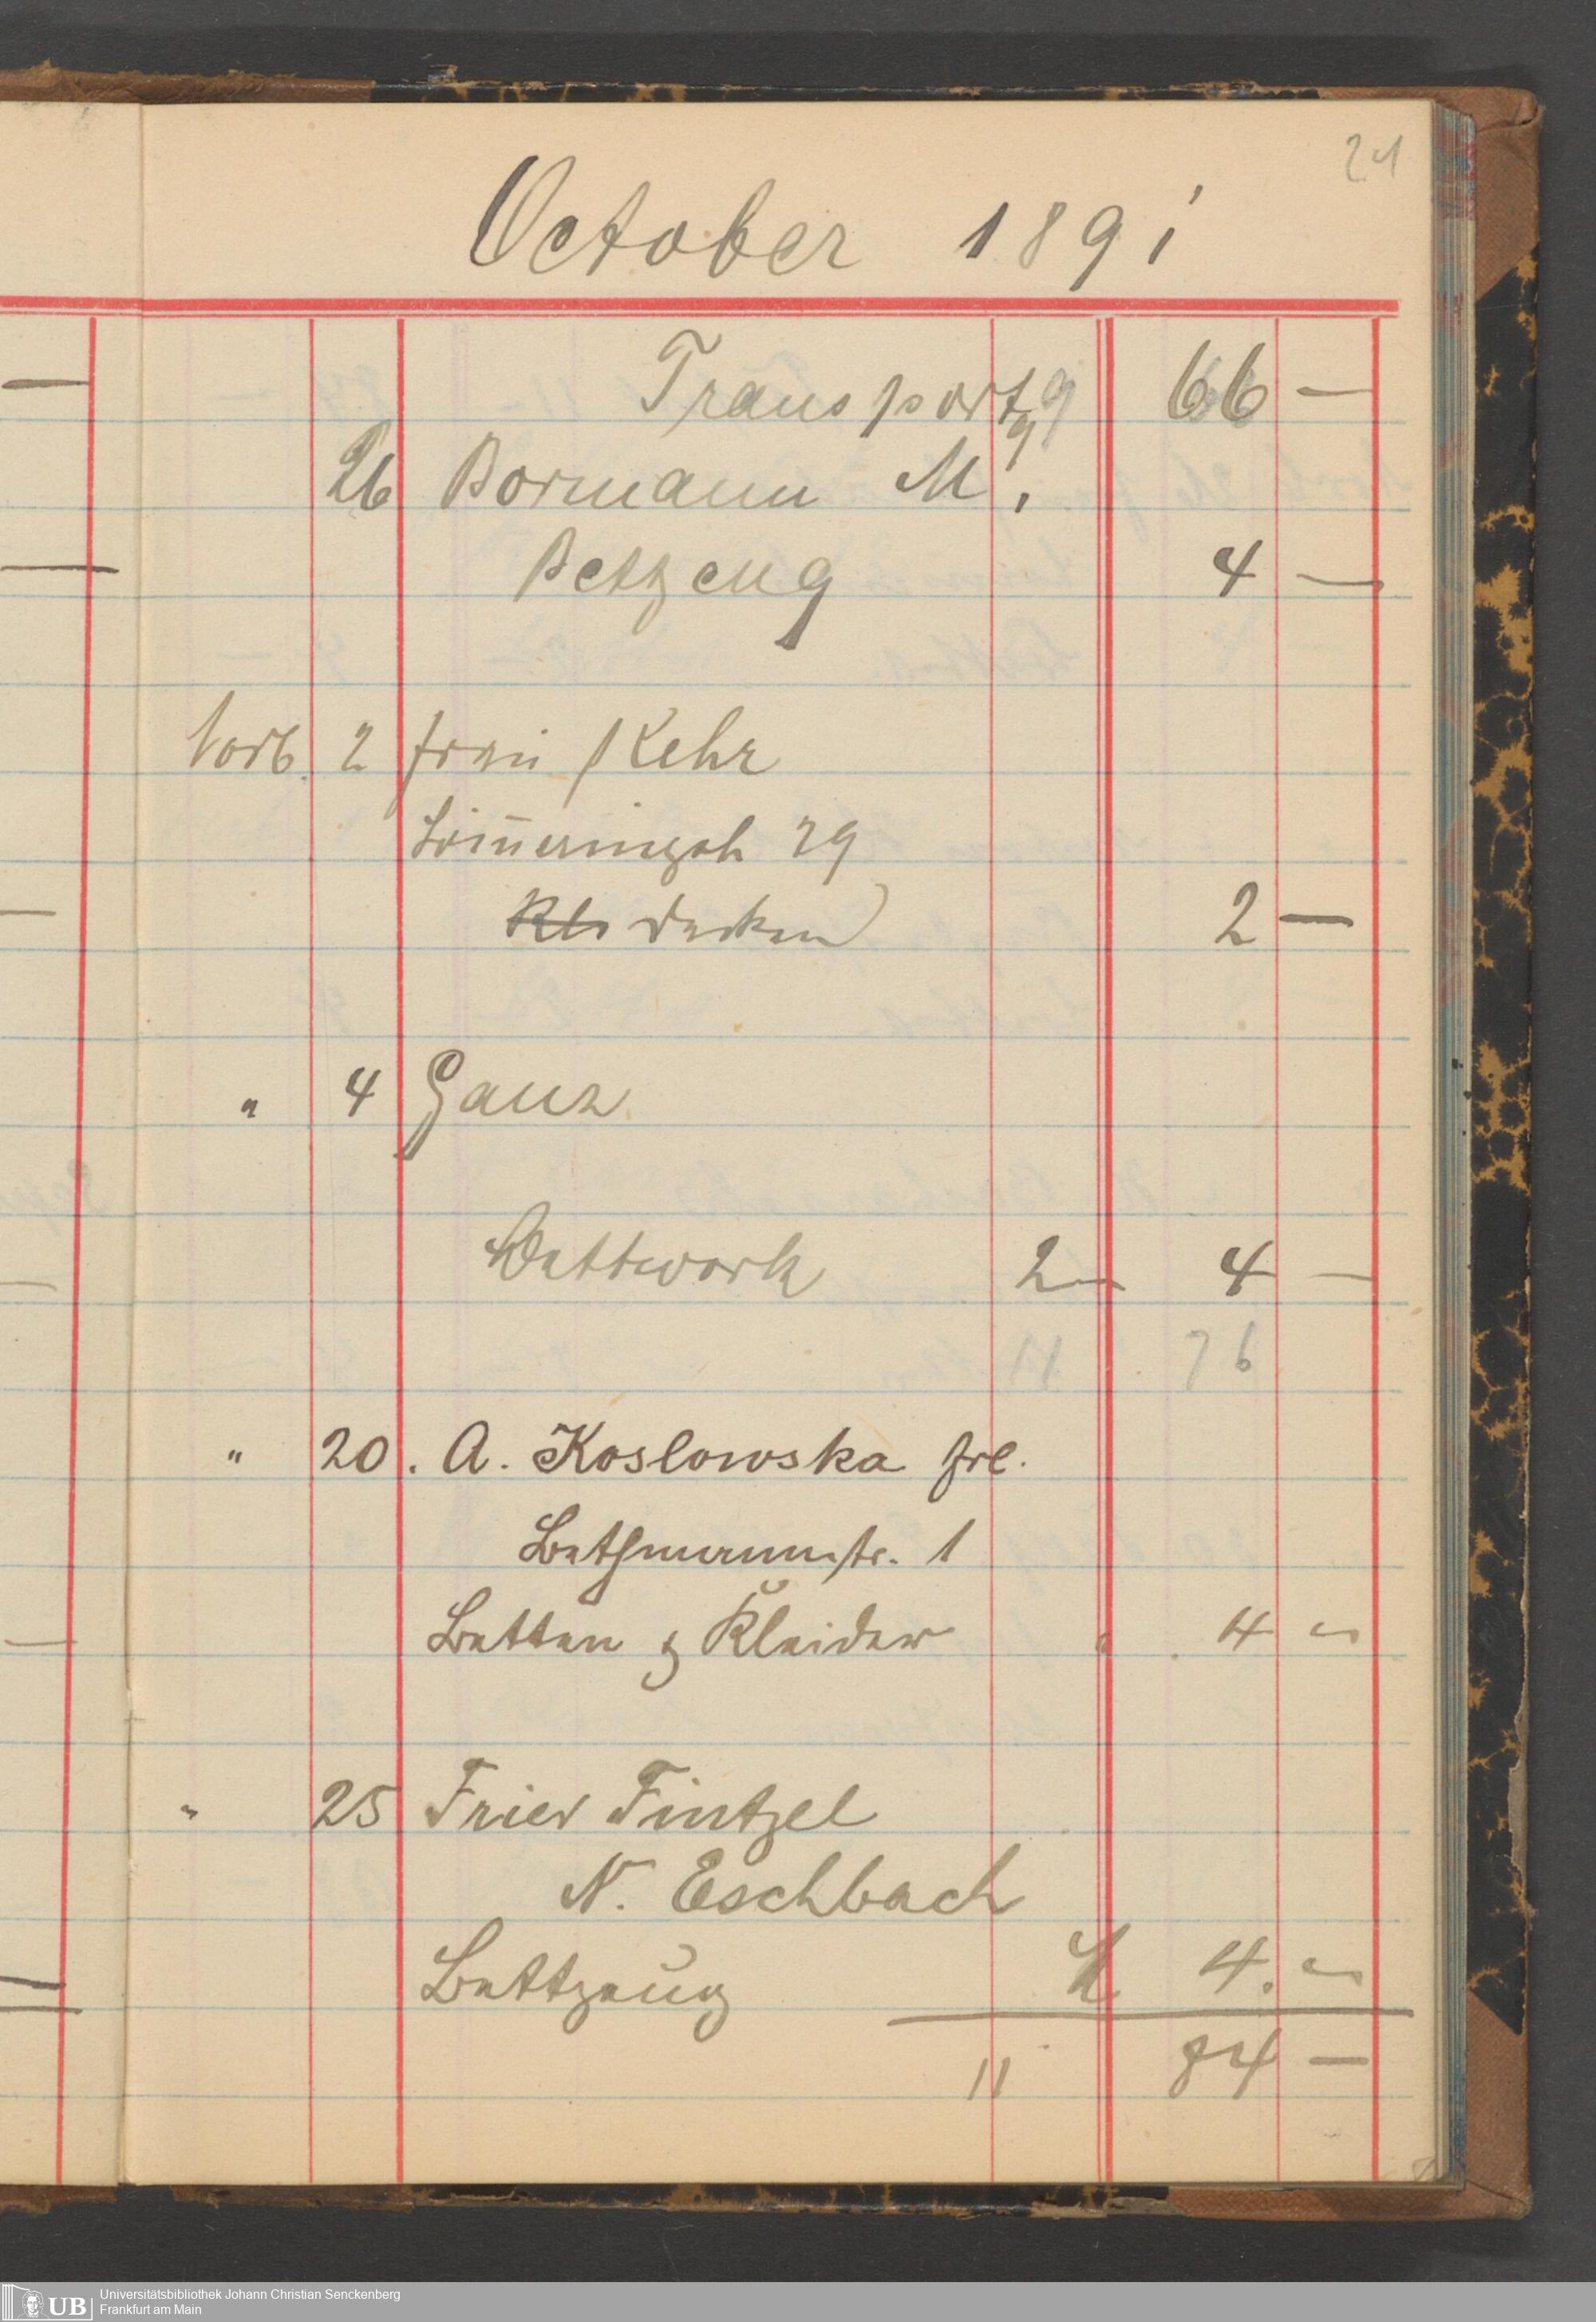 24
October 1891
Transport 9 66 —
26 Bormann M.
Betzeug 4 —
2 frau Kehr
29
Decken 2 —
" 4 Ganz
Bettwerk 2 — 4 —
11 76
" 20. A. Koslowska frl.
Bethmannstr. 1
Betten & Kleider 4 "
" 25 Frier Fintzel
N. Eschbach
Bettzeug 4. "
11 84 —
UB Universitätsbibliothek Johann Christian Senckenberg
Frankfurt am Main